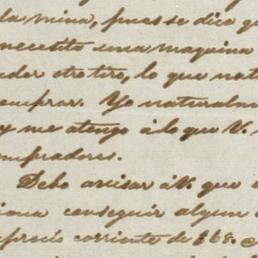 la mina, pues se dice q
necesito una maquina
der otro tiro, lo que nat
omprar. Yo naturalm
y me atengo á lo que V.
mpradores.
Debo avisar á V. que
conseguir algun
precio corriente de $68.